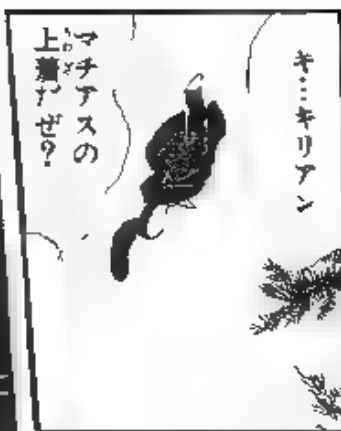 キ…キリアン
マチアスの
上着だぜ?